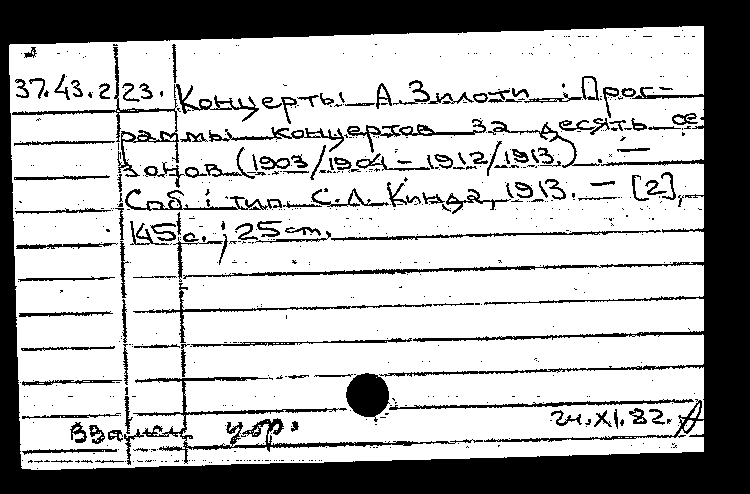 37.43.2.23. Концерты А. Зилоти : Прог-
раммы концертов за десять се-
зонов (1903/1904 – 1912/1913.) . —
Спб. : тип. С.Л. Кинда, 1913. — [2],
145 с. ; 25 см.
Взамен утр. 24.XI.82.